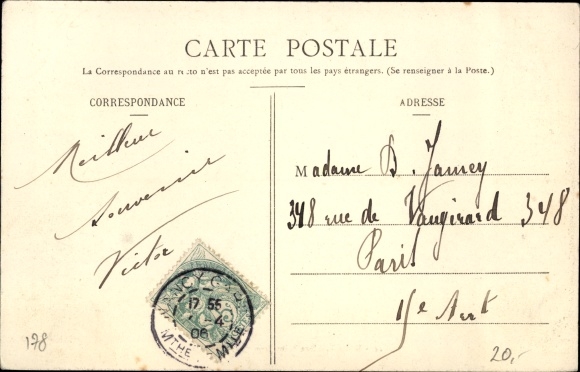 CARTE POSTALE
La Correspondance au recto n'est pas acceptée par tous les pays étrangers. (Se renseigner à la Poste.)
CORRESPONDANCE
Meilleur
souvenir
Victor
ADRESSE
Madame B. Jamey
348 rue de Vaugirard 348
Paris
15e Arrt
NANCY GARE
17 55
4
06
MTHE MLLE
178
20,-